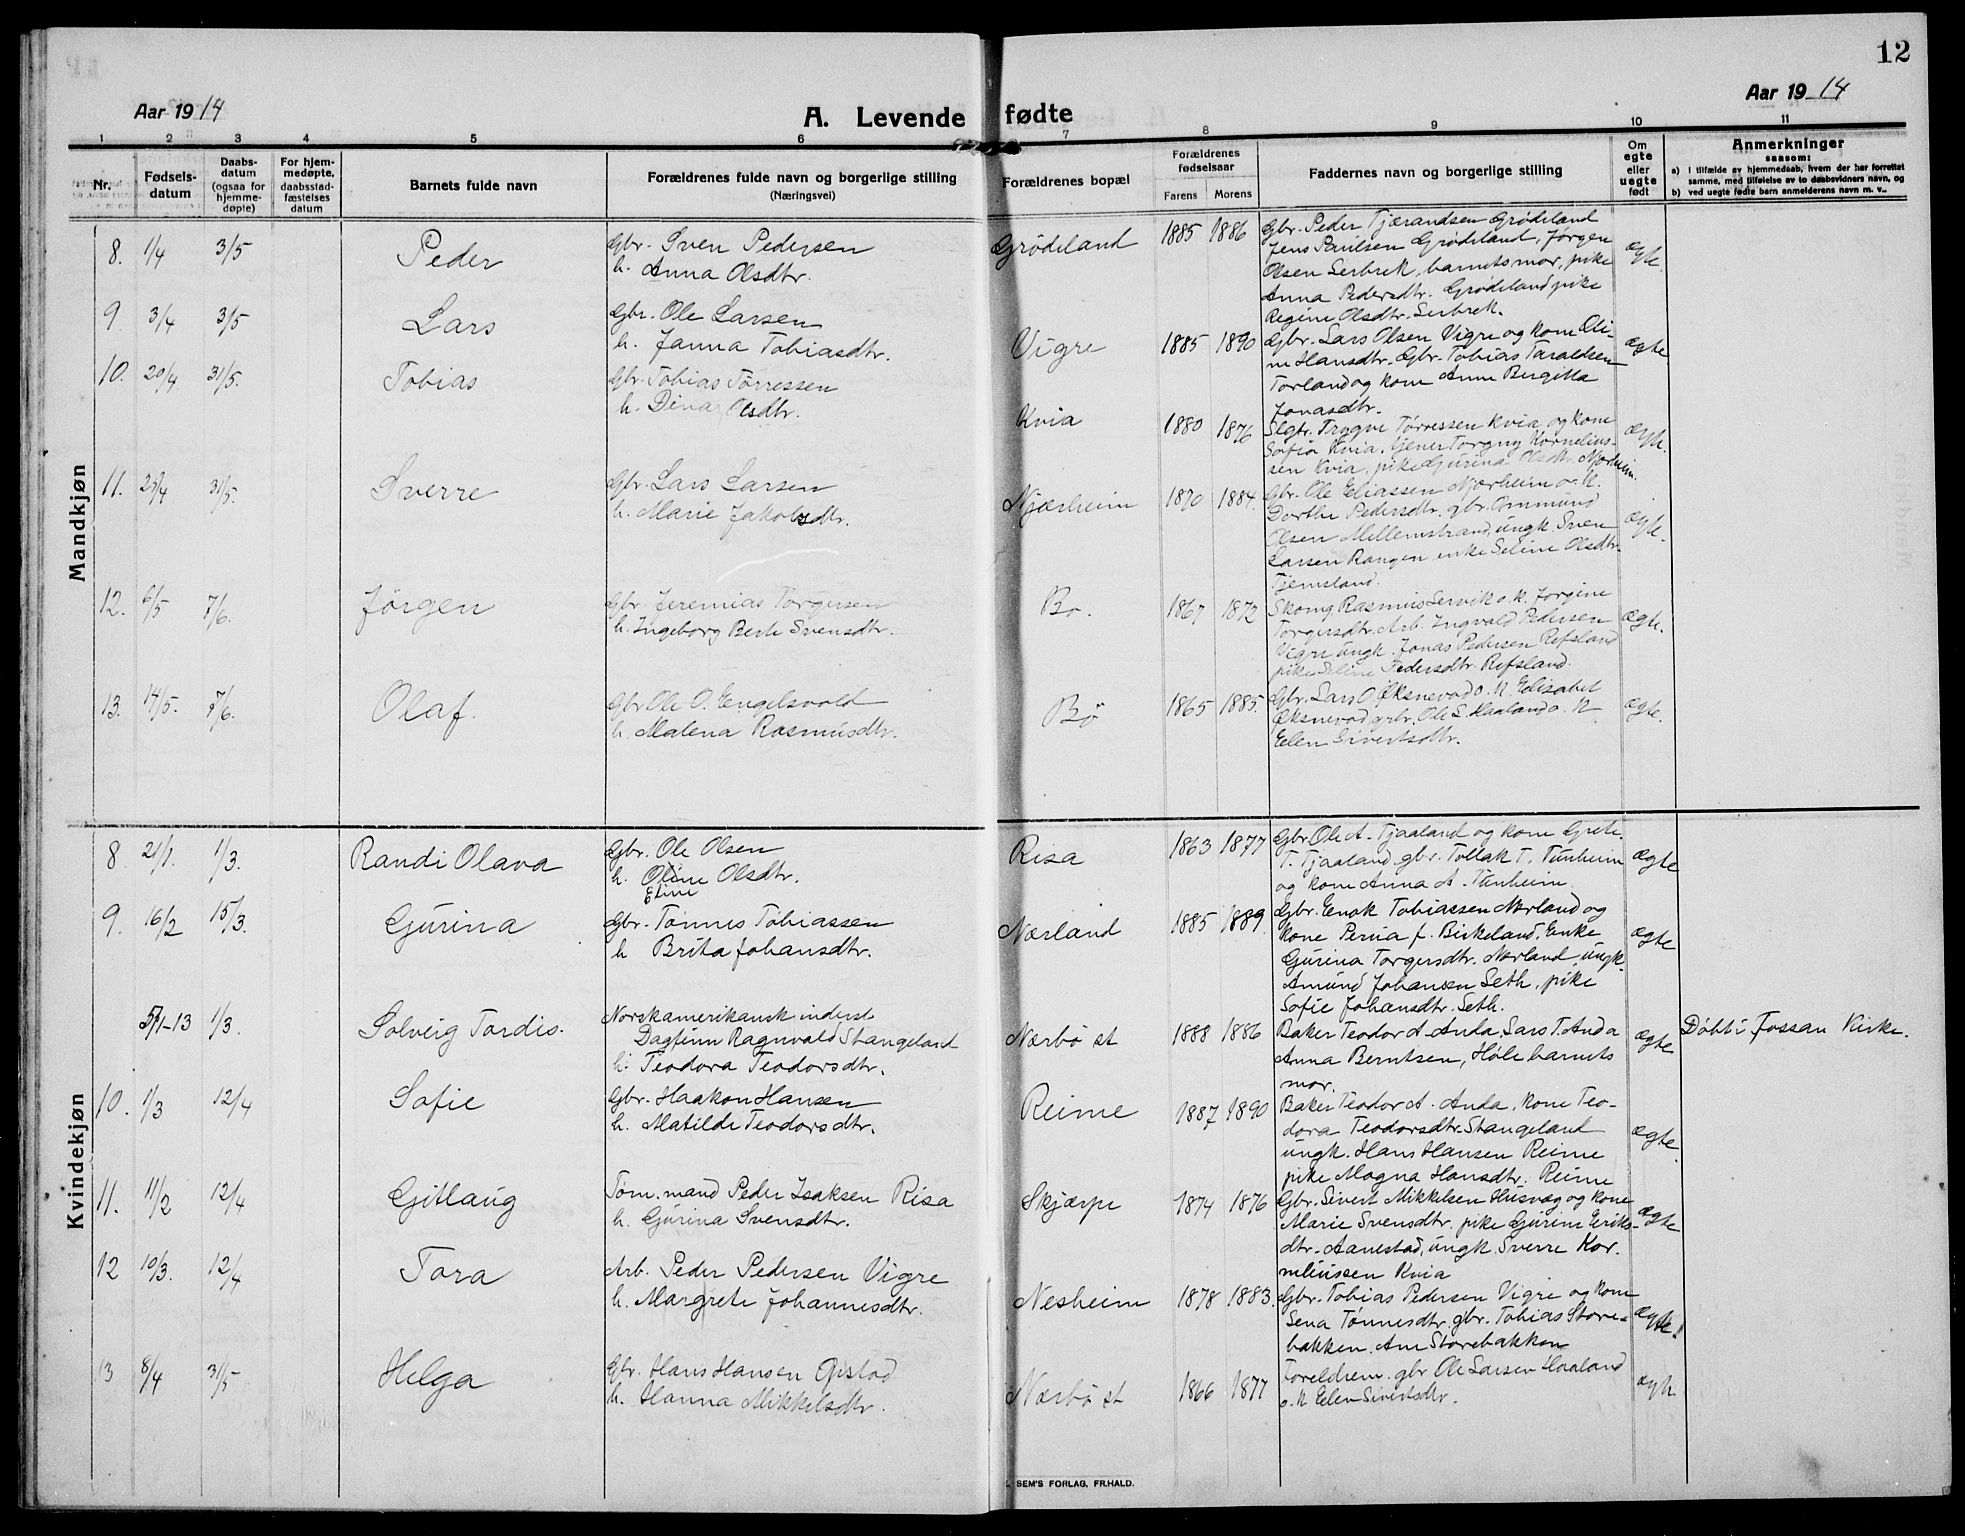 12
Aar 1914
A. Levende fødte
Aar 1914
1 2 3 4 5 6 7 8 9 10 11
Nr.
Fødsels-
datum
Daabs-
datum
(ogsaa for
hjemme-
døpte)
For hjem-
medøpte,
daabsstad-
fæstelses
datum
Barnets fulde navn
Forældrenes fulde navn og borgerlige stilling
(Næringsvei)
Forældrenes bopæl
Forældrenes
fødselsaar
Farens Morens
Faddernes navn og borgerlige stilling
Om
egte
eller
uegte
født
Anmerkninger
saasom:
a) I tilfælde av hjemmedaab, hvem der har forrettet
samme, med tilføielse av to daabsvidners navn, og
b) ved uegte fødte barn anmelderens navn m. v..
Mandkjøn
8. 1/4 3/5 Peder
Gbr. Sven Pedersen
h. Anna Olsdtr.
Grødeland 1885 1886
Gbr. Peder Tjærandsen Grødeland
Jens Paulsen Grødeland, Jørgen
Olsen Serbrek, barnets mor, pike
Anna Pedersdtr. Grødeland pike
Regine Olsdtr. Serbrek.
ægte.
9 3/4 3/5 Lars
Gbr. Ole Larsen
h. Janna Tobiasdtr.
Vigre 1885 1890
Gbr. Lars Olsen Vigre og kone Oli-
ne Hansdtr. Gbr. Tobias Taraldsen
Torland og kone Anne Bergitta
Jonasdtr.
ægte
10. 20/4 31/5. Tobias
Gbr. Tobias Tørressen
h. Dina Olsdtr.
Kvia 1880 1876
Slgtr. Trygve Tørressen Kvia og kone
Sofie Kvia, tjener Torgny Kornelius-
sen Kvia, pike Gurina Olsdtr. Njærheim.
ægte.
11. 25/4 31/5. Sverre
Gbr. Lars Larsen
h. Marie Jakobsdtr.
Njærheim 1870 1884.
Gbr. Ole Eliassen Njærheim o. K.
Dorthe Pedersdtr. gbr. Ommund
Olsen Mellemstrand, ungk. Sven
Larsen Rangen, enke Seline Olsdtr.
Tjemsland.
ægte.
12. 6/5 7/6. Jørgen
Gbr. Jeremias Torgersen
h. Ingeborg Berte Svensdtr.
Bø. 1867 1872
Skomg Rasmus Servik o. k. Jorgine
Torgersdtr. Arb. Ingvald Pedersen
Vigre ungk. Jonas Pedersen Refsland
pike Seline Pedersdtr. Refsland.
ægte.
13. 14/5. 7/6. Olaf.
Gbr Ole O. Engelsvold
h. Malena Rasmusdtr.
Bø 1865 1885.
Gbr. Lars O. Øksnevad o. K. Elisabet
Øksnevad, gbr. Ole L. Haaland o. K
Elen Sivertsdtr.
ægte.
Kvindekjøn
8. 21/1. 1/3. Randi Olava
Gbr. Ole Olsen
h. Oline Olsdtr.
Eline
Risa 1863 1877
Gbr. Ole A. Tjaaland og kone Grete
T. Tjaaland, gbr. Tollak T. Tunheim
og kone Anna A. Tunheim.
ægte
9. 16/2 15/3. Gurina
Gbr. Tønnes Tobiassen
h Brita Johansdtr.
Nærland 1885 1889.
Gbr. Enok Tobiassen Nærland og
kone Perna f. Birkeland, Enke
Gurina Torgersdtr. Nærland, ungk.
Amund Johansen Seth, pike
Sofie Johansdtr. Seth.
ægte
5/1-13 1/3. Solveig Tordis.
Norskamerikansk inderst
Dagfinn Ragnvald Stangeland
h. Teodora Teodorsdtr.
Nærbø st 1888 1886
Baker Teodor A. Anda, Lars T. Anda
Anna Berntsen, Høle barnets
mor.
ægte
Døbt i Fossan Kirke.
10. 1/3 12/4 Sofie
Gbr. Haakon Hansen
h. Matilde Teodorsdtr.
Reime 1887 1890
Baker Teodor A. Anda, kone Teo-
dora Teodorsdtr. Stangeland
ungk. Hans Hansen Reime
pike Magna Hansdtr. Reime
ægte.
11. 11/2 12/4 Gitlaug
Tøm.mand Peder Isaksen Risa
h. Gurina Svensdtr.
Skjærpe 1874 1876
Gbr. Sivert Mikkelsen Husvæg og kone
Marie Svensdtr. pike Gurine Eriks-
dtr. Aanestad, ungk. Sverre Kor.
neliussen Kvia
ægte
12 10/3. 12/4 Tora
Arb. Peder Pedersen Vigre
h. Margrete Johannesdtr.
Nesheim 1878 1883.
Gbr. Tobias Pedersen Vigre og kone
Sena Tønnesdtr. gbr. Tobias Store-
bakken. Ane Storebakken
ægte.
13 8/4 31/5 Helga
Gbr. Hans Hansen Opstad
h. Hanna Mikkelsdtr.
Nærbø st 1866 1877
Foreldrene. gbr Ole Larsen Haaland
o. K Elen Sivertsdtr.
ægte
SEM'S FORLAG, FR.HALD.